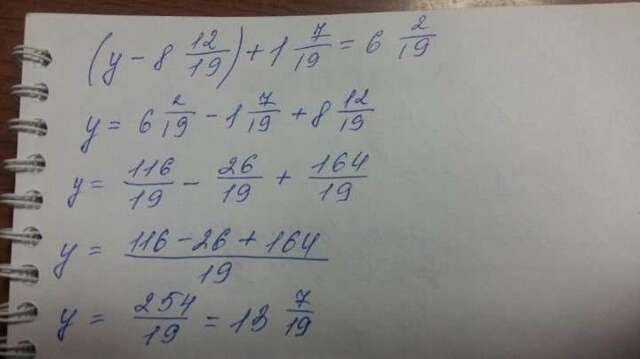 (y - 8 12/19) + 1 7/19 = 6 2/19
y = 6 2/19 - 1 7/19 + 8 12/19
y = 116/19 - 26/19 + 164/19
y = (116 - 26 + 164)/19
y = 254/19 = 13 7/19